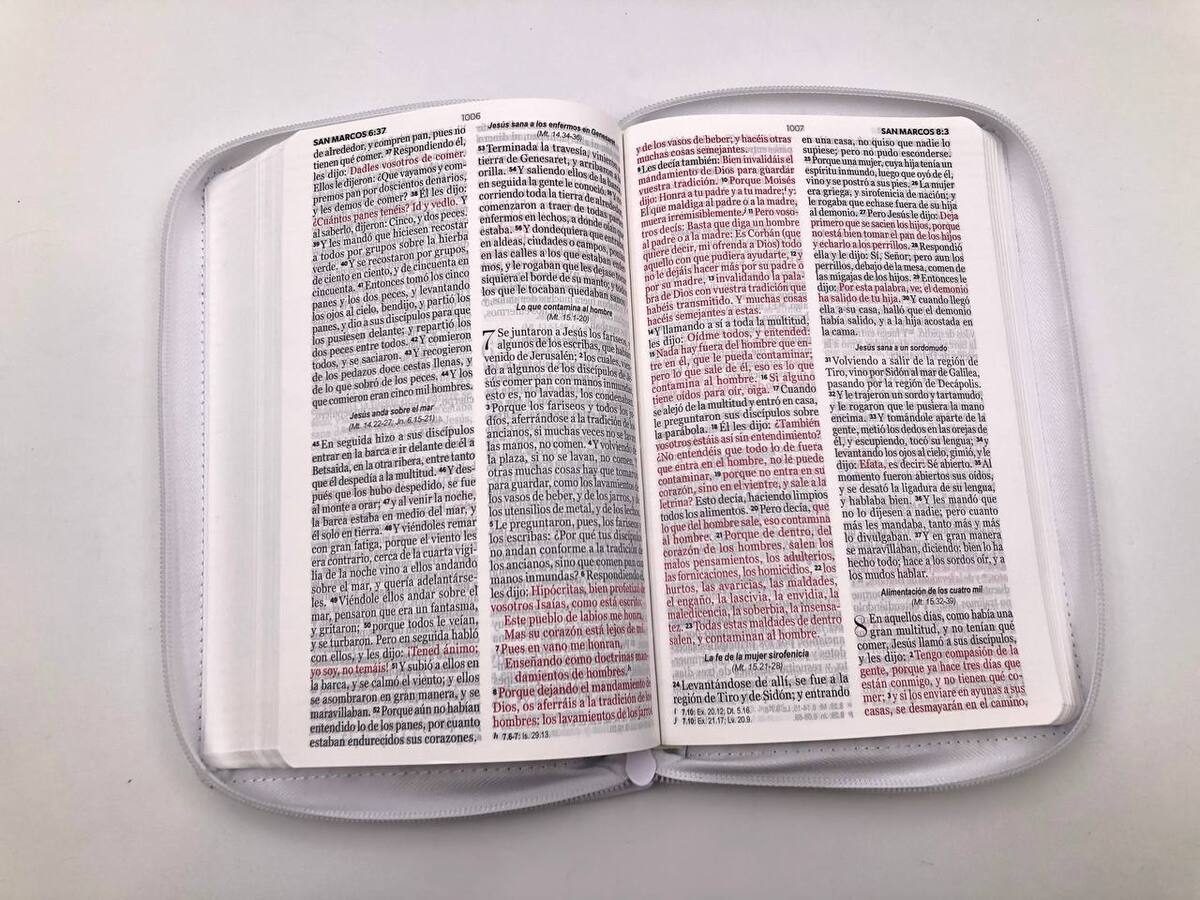 SAN MARCOS 6:37
1006
de alrededor, y compren pan, pues no
tienen qué comer. 37 Respondiendo él,
les dijo: Dadles vosotros de comer.
Ellos le dijeron: ¿Que vayamos y com-
premos pan por doscientos denarios,
y les demos de comer? 38 Él les dijo:
¿Cuántos panes tenéis? Id y vedlo. Y
al saberlo, dijeron: Cinco, y dos peces.
39 Y les mandó que hiciesen recostar
a todos por grupos sobre la hierba
verde. 40 Y se recostaron por grupos,
de ciento en ciento, y de cincuenta en
cincuenta. 41 Entonces tomó los cinco
panes y los dos peces, y levantando
los ojos al cielo, bendijo, y partió los
panes, y dio a sus discípulos para que
los pusiesen delante; y repartió los
dos peces entre todos. 42 Y comieron
todos, y se saciaron. 43 Y recogieron
de los pedazos doce cestas llenas, y
de lo que sobró de los peces. 44 Y los
que comieron eran cinco mil hombres.
Jesús anda sobre el mar
(Mt. 14.22-27, Jn. 6.15-21)
45 En seguida hizo a sus discípulos
entrar en la barca e ir delante de él a
Betsaida, en la otra ribera, entre tanto
que él despedía a la multitud. 46 Y des-
pués que los hubo despedido, se fue
al monte a orar; 47 y al venir la noche,
la barca estaba en medio del mar, y
él solo en tierra. 48 Y viéndoles remar
con gran fatiga, porque el viento les
era contrario, cerca de la cuarta vigi-
lia de la noche vino a ellos andando
sobre el mar, y quería adelantárse-
les. 49 Viéndole ellos andar sobre el
mar, pensaron que era un fantasma,
y gritaron; 50 porque todos le veían,
y se turbaron. Pero en seguida habló
con ellos, y les dijo: ¡Tened ánimo;
yo soy, no temáis! 51 Y subió a ellos en
la barca, y se calmó el viento; y ellos
se asombraron en gran manera, y se
maravillaban. 52 Porque aún no habían
entendido lo de los panes, por cuanto
estaban endurecidos sus corazones.
Jesús sana a los enfermos en Genesaret
(Mt. 14.34-36)
53 Terminada la travesía, vinieron
tierra de Genesaret, y arribaron a
orilla. 54 Y saliendo ellos de la barca
en seguida la gente le conoció. 55 Y
corriendo toda la tierra de alrededor,
comenzaron a traer de todas partes
enfermos en lechos, a donde oían
estaba. 56 Y dondequiera que entraba
en aldeas, ciudades o campos, ponían
en las calles a los que estaban enfer
mos, y le rogaban que les dejase
siquiera el borde de su manto; y todos
los que le tocaban quedaban sanos.
Lo que contamina al hombre
(Mt. 15.1-20)
7 Se juntaron a Jesús los fariseos, y
algunos de los escribas, que habían
venido de Jerusalén; 2 los cuales, vien
do a algunos de los discípulos de
sús comer pan con manos inmundas
esto es, no lavadas, los condenaban
3 Porque los fariseos y todos los
díos, aferrándose a la tradición de
ancianos, si muchas veces no se lavan
las manos, no comen. 4 Y volviendo de
la plaza, si no se lavan, no comen.
otras muchas cosas hay que tomaron
para guardar, como los lavamientos de
los vasos de beber, y de los jarros, y de
los utensilios de metal, y de los lechos
5 Le preguntaron, pues, los fariseos y
los escribas: ¿Por qué tus discípulos
no andan conforme a la tradición de
los ancianos, sino que comen pan con
manos inmundas? 6 Respondiendo él,
les dijo: Hipócritas, bien profetizó de
vosotros Isaías, como está escrito:
Este pueblo de labios me honra,
Mas su corazón está lejos de mí.
7 Pues en vano me honran,
Enseñando como doctrinas man-
damientos de hombres. h
8 Porque dejando el mandamiento de
Dios, os aferráis a la tradición de los
hombres: los lavamientos de los jarros
h 7.6-7: Is. 29.13.
1007
SAN MARCOS 8:3
y de los vasos de beber; y hacéis otras
muchas cosas semejantes.
9 Les decía también: Bien invalidáis el
mandamiento de Dios para guardar
vuestra tradición. 10 Porque Moisés
dijo: Honra a tu padre y a tu madre; i y:
El que maldiga al padre o a la madre,
muera irremisiblemente. j 11 Pero voso-
tros decís: Basta que diga un hombre
al padre o a la madre: Es Corbán (que
quiere decir, mi ofrenda a Dios) todo
aquello con que pudiera ayudarte, 12 y
no le dejáis hacer más por su padre o
por su madre, 13 invalidando la pala-
bra de Dios con vuestra tradición que
habéis transmitido. Y muchas cosas
hacéis semejantes a estas.
14 Y llamando a sí a toda la multitud,
les dijo: Oídme todos, y entended:
15 Nada hay fuera del hombre que en-
tre en él, que le pueda contaminar;
pero lo que sale de él, eso es lo que
contamina al hombre. 16 Si alguno
tiene oídos para oír, oiga. 17 Cuando
se alejó de la multitud y entró en casa,
le preguntaron sus discípulos sobre
la parábola. 18 Él les dijo: ¿También
vosotros estáis así sin entendimiento?
¿No entendéis que todo lo de fuera
que entra en el hombre, no le puede
contaminar, 19 porque no entra en su
corazón, sino en el vientre, y sale a la
letrina? Esto decía, haciendo limpios
todos los alimentos. 20 Pero decía, que
lo que del hombre sale, eso contamina
al hombre. 21 Porque de dentro, del
corazón de los hombres, salen los
malos pensamientos, los adulterios,
las fornicaciones, los homicidios, 22 los
hurtos, las avaricias, las maldades,
el engaño, la lascivia, la envidia, la
maledicencia, la soberbia, la insensa-
tez. 23 Todas estas maldades de dentro
salen, y contaminan al hombre.
La fe de la mujer sirofenicia
(Mt. 15.21-28)
24 Levantándose de allí, se fue a la
región de Tiro y de Sidón; y entrando
i 7.10: Ex. 20.12; Dt. 5.16.
j 7.10: Ex. 21.17; Lv. 20.9.
en una casa, no quiso que nadie lo
supiese; pero no pudo esconderse.
25 Porque una mujer, cuya hija tenía un
espíritu inmundo, luego que oyó de él,
vino y se postró a sus pies. 26 La mujer
era griega, y sirofenicia de nación; y
le rogaba que echase fuera de su hija
al demonio. 27 Pero Jesús le dijo: Deja
primero que se sacien los hijos, porque
no está bien tomar el pan de los hijos
y echarlo a los perrillos. 28 Respondió
ella y le dijo: Sí, Señor; pero aun los
perrillos, debajo de la mesa, comen de
las migajas de los hijos. 29 Entonces le
dijo: Por esta palabra, ve; el demonio
ha salido de tu hija. 30 Y cuando llegó
ella a su casa, halló que el demonio
había salido, y a la hija acostada en
la cama.
Jesús sana a un sordomudo
31 Volviendo a salir de la región de
Tiro, vino por Sidón al mar de Galilea,
pasando por la región de Decápolis.
32 Y le trajeron un sordo y tartamudo,
y le rogaron que le pusiera la mano
encima. 33 Y tomándole aparte de la
gente, metió los dedos en las orejas de
él, y escupiendo, tocó su lengua; 34 y
levantando los ojos al cielo, gimió, y le
dijo: Efata, es decir: Sé abierto. 35 Al
momento fueron abiertos sus oídos,
y se desató la ligadura de su lengua,
y hablaba bien. 36 Y les mandó que
no lo dijesen a nadie; pero cuanto
más les mandaba, tanto más y más
lo divulgaban. 37 Y en gran manera
se maravillaban, diciendo: bien lo ha
hecho todo; hace a los sordos oír, y a
los mudos hablar.
Alimentación de los cuatro mil
(Mt. 15.32-39)
8 En aquellos días, como había una
gran multitud, y no tenían qué
comer, Jesús llamó a sus discípulos,
y les dijo: 2 Tengo compasión de la
gente, porque ya hace tres días que
están conmigo, y no tienen qué co-
mer; 3 y si los enviare en ayunas a sus
casas, se desmayarán en el camino,